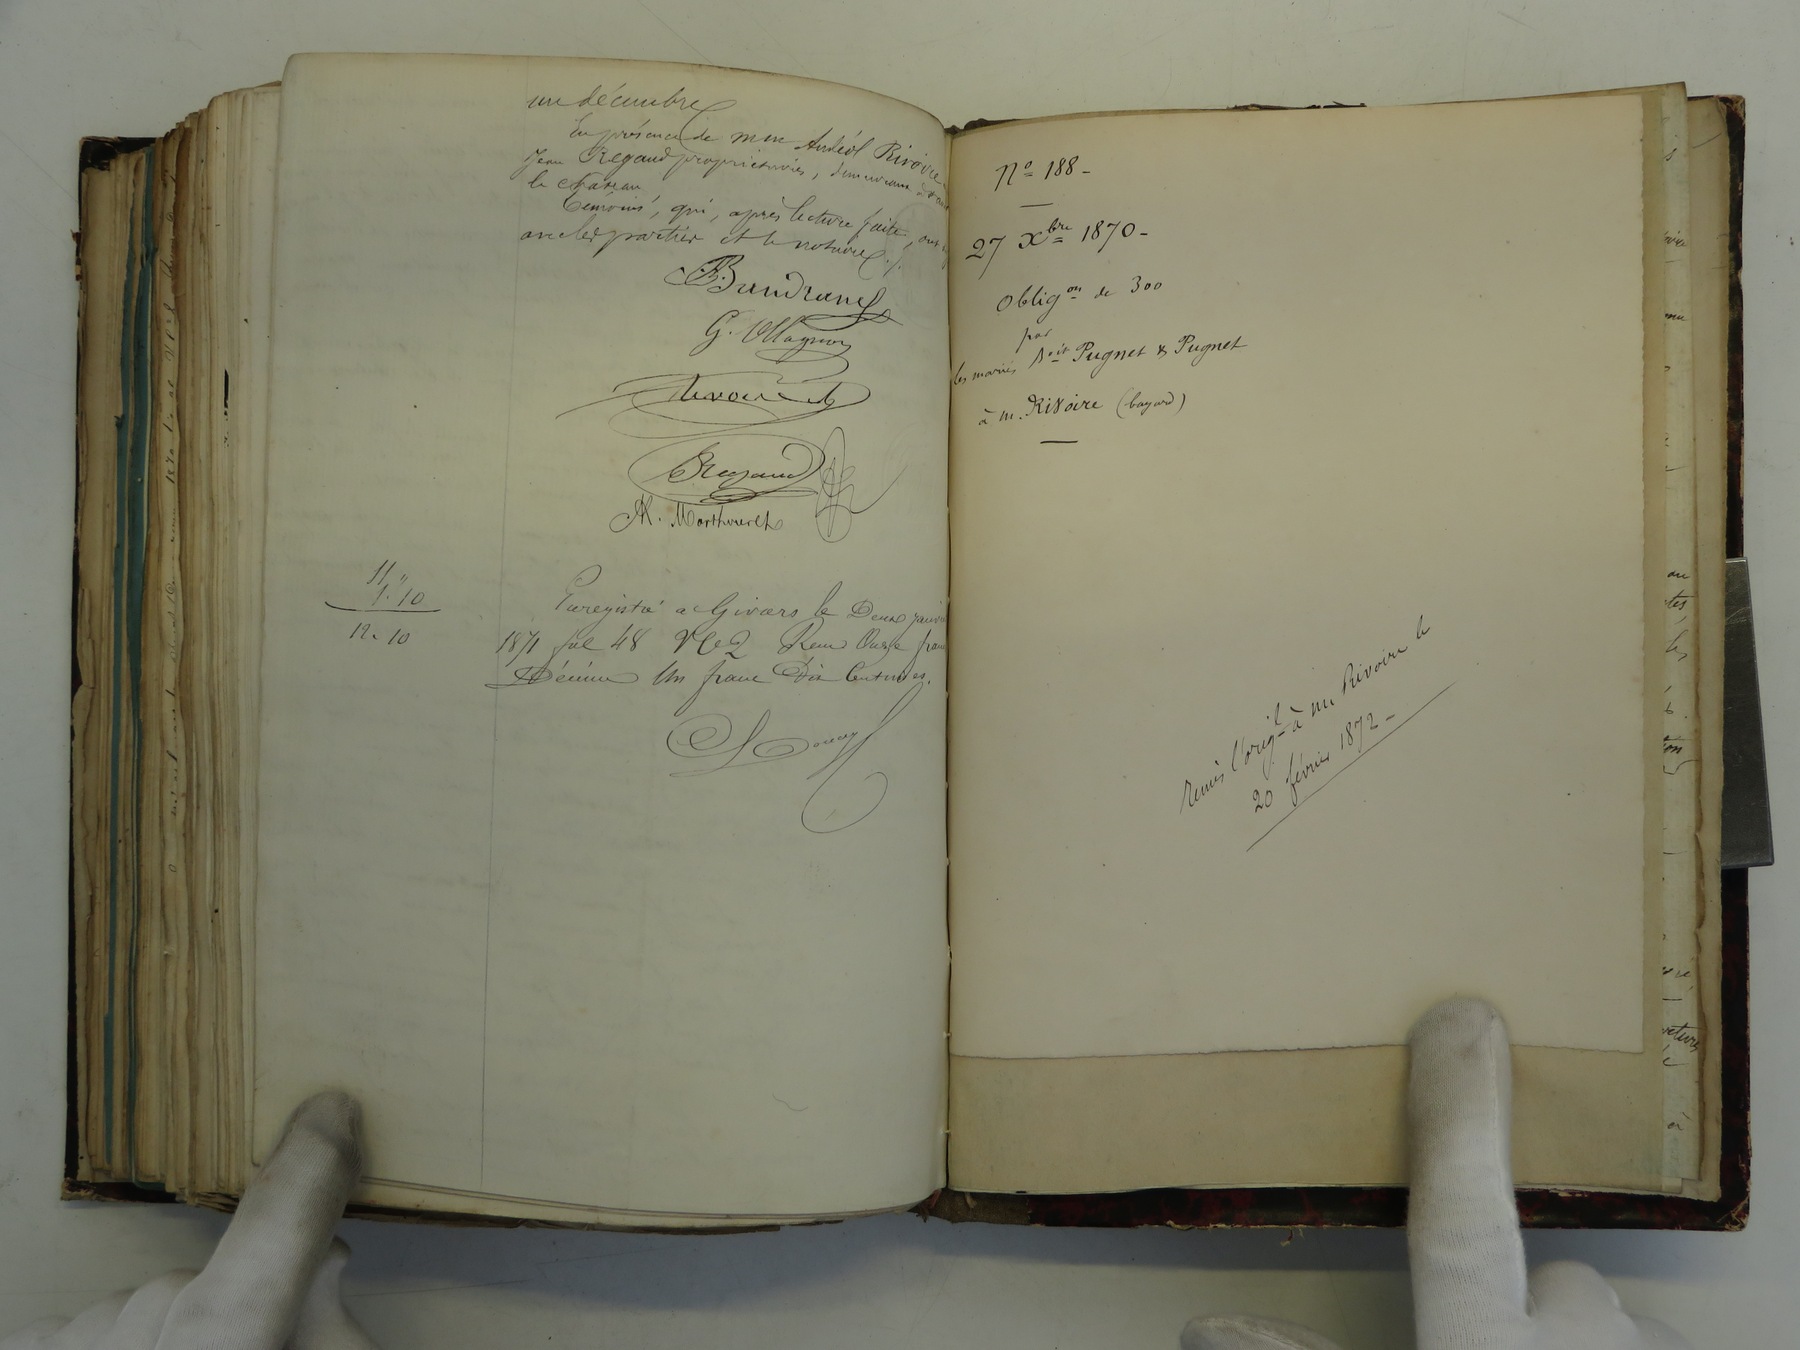 un décembre
En présence de mm Andéol Rivoire
Jean Regaud propriétaires, demeurant à
le chateau
témoins, qui, après lecture faite, ont
avec les parties et le notaire ./.
G. Magnon
Rivoire
Regaud
11 "
1. 10
12. 10
Enregistré à Givors le Deux janvier
1871 fol 48 Vo C 2 Reçu Onze francs
Décime Un franc Dix Centimes.
No 188 -
27 Xbre 1870 -
Obligon de 300
par
les mariés Boit Pugnet & Pugnet
à m. Rivoire (bayard)
Remis l'origl à m. Rivoire le
20 février 1872 -